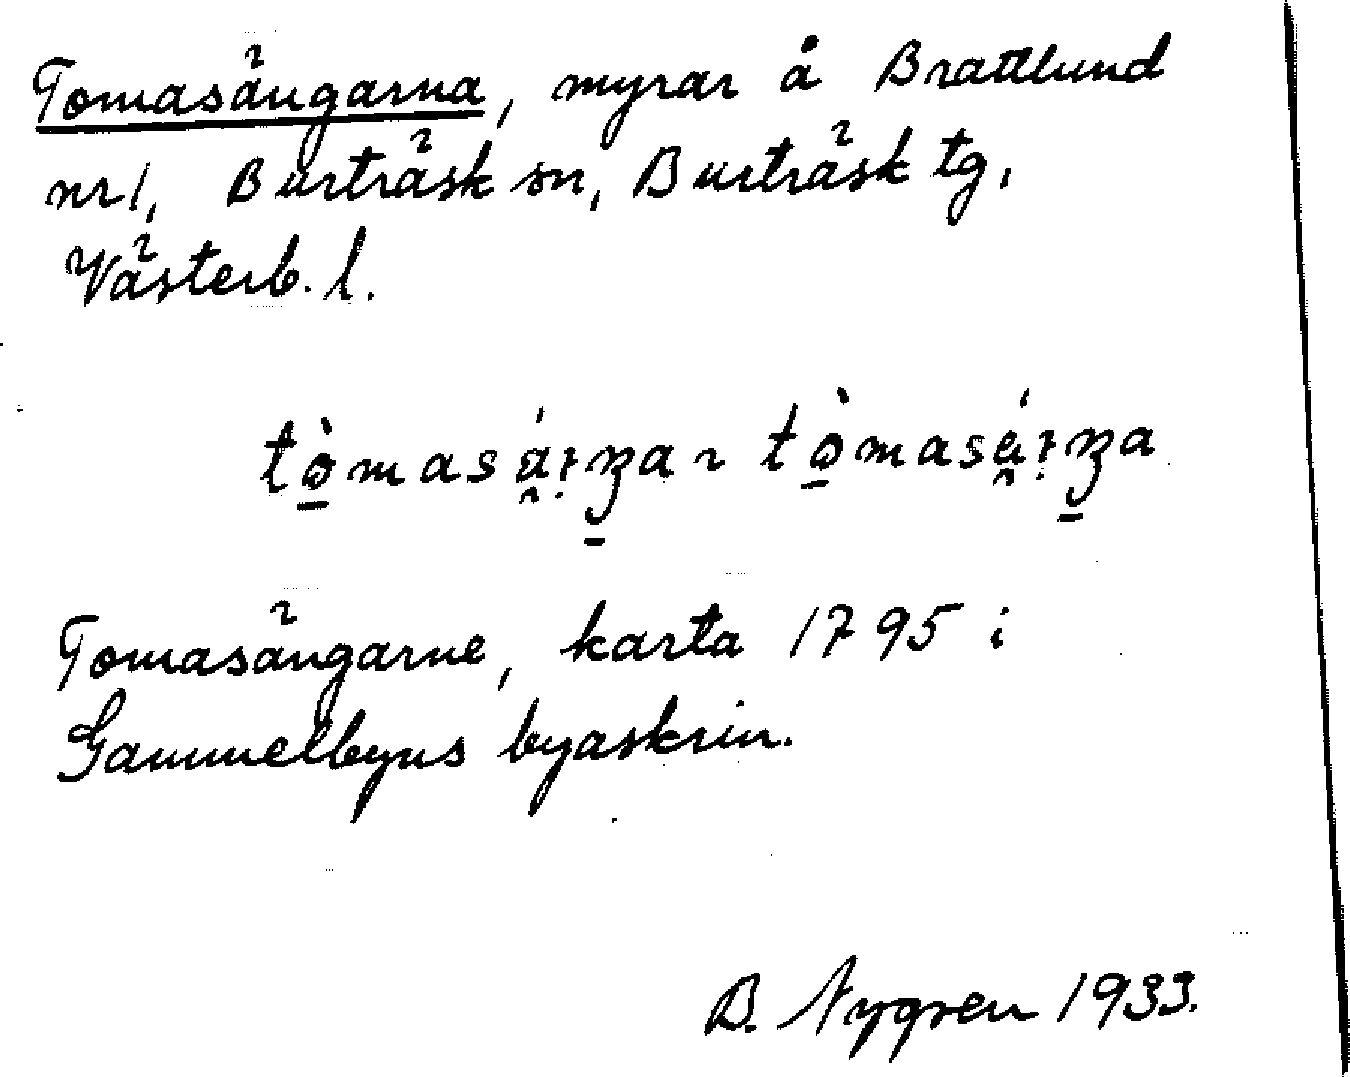 Tomasängarna, myrar å Brattlund
nr 1, Burträsk sn, Burträsk tg,
Västerb. l.
Tomasängarne, karta 1795 i
Gammelbyns byaskrin.
B. Nygren 1933.